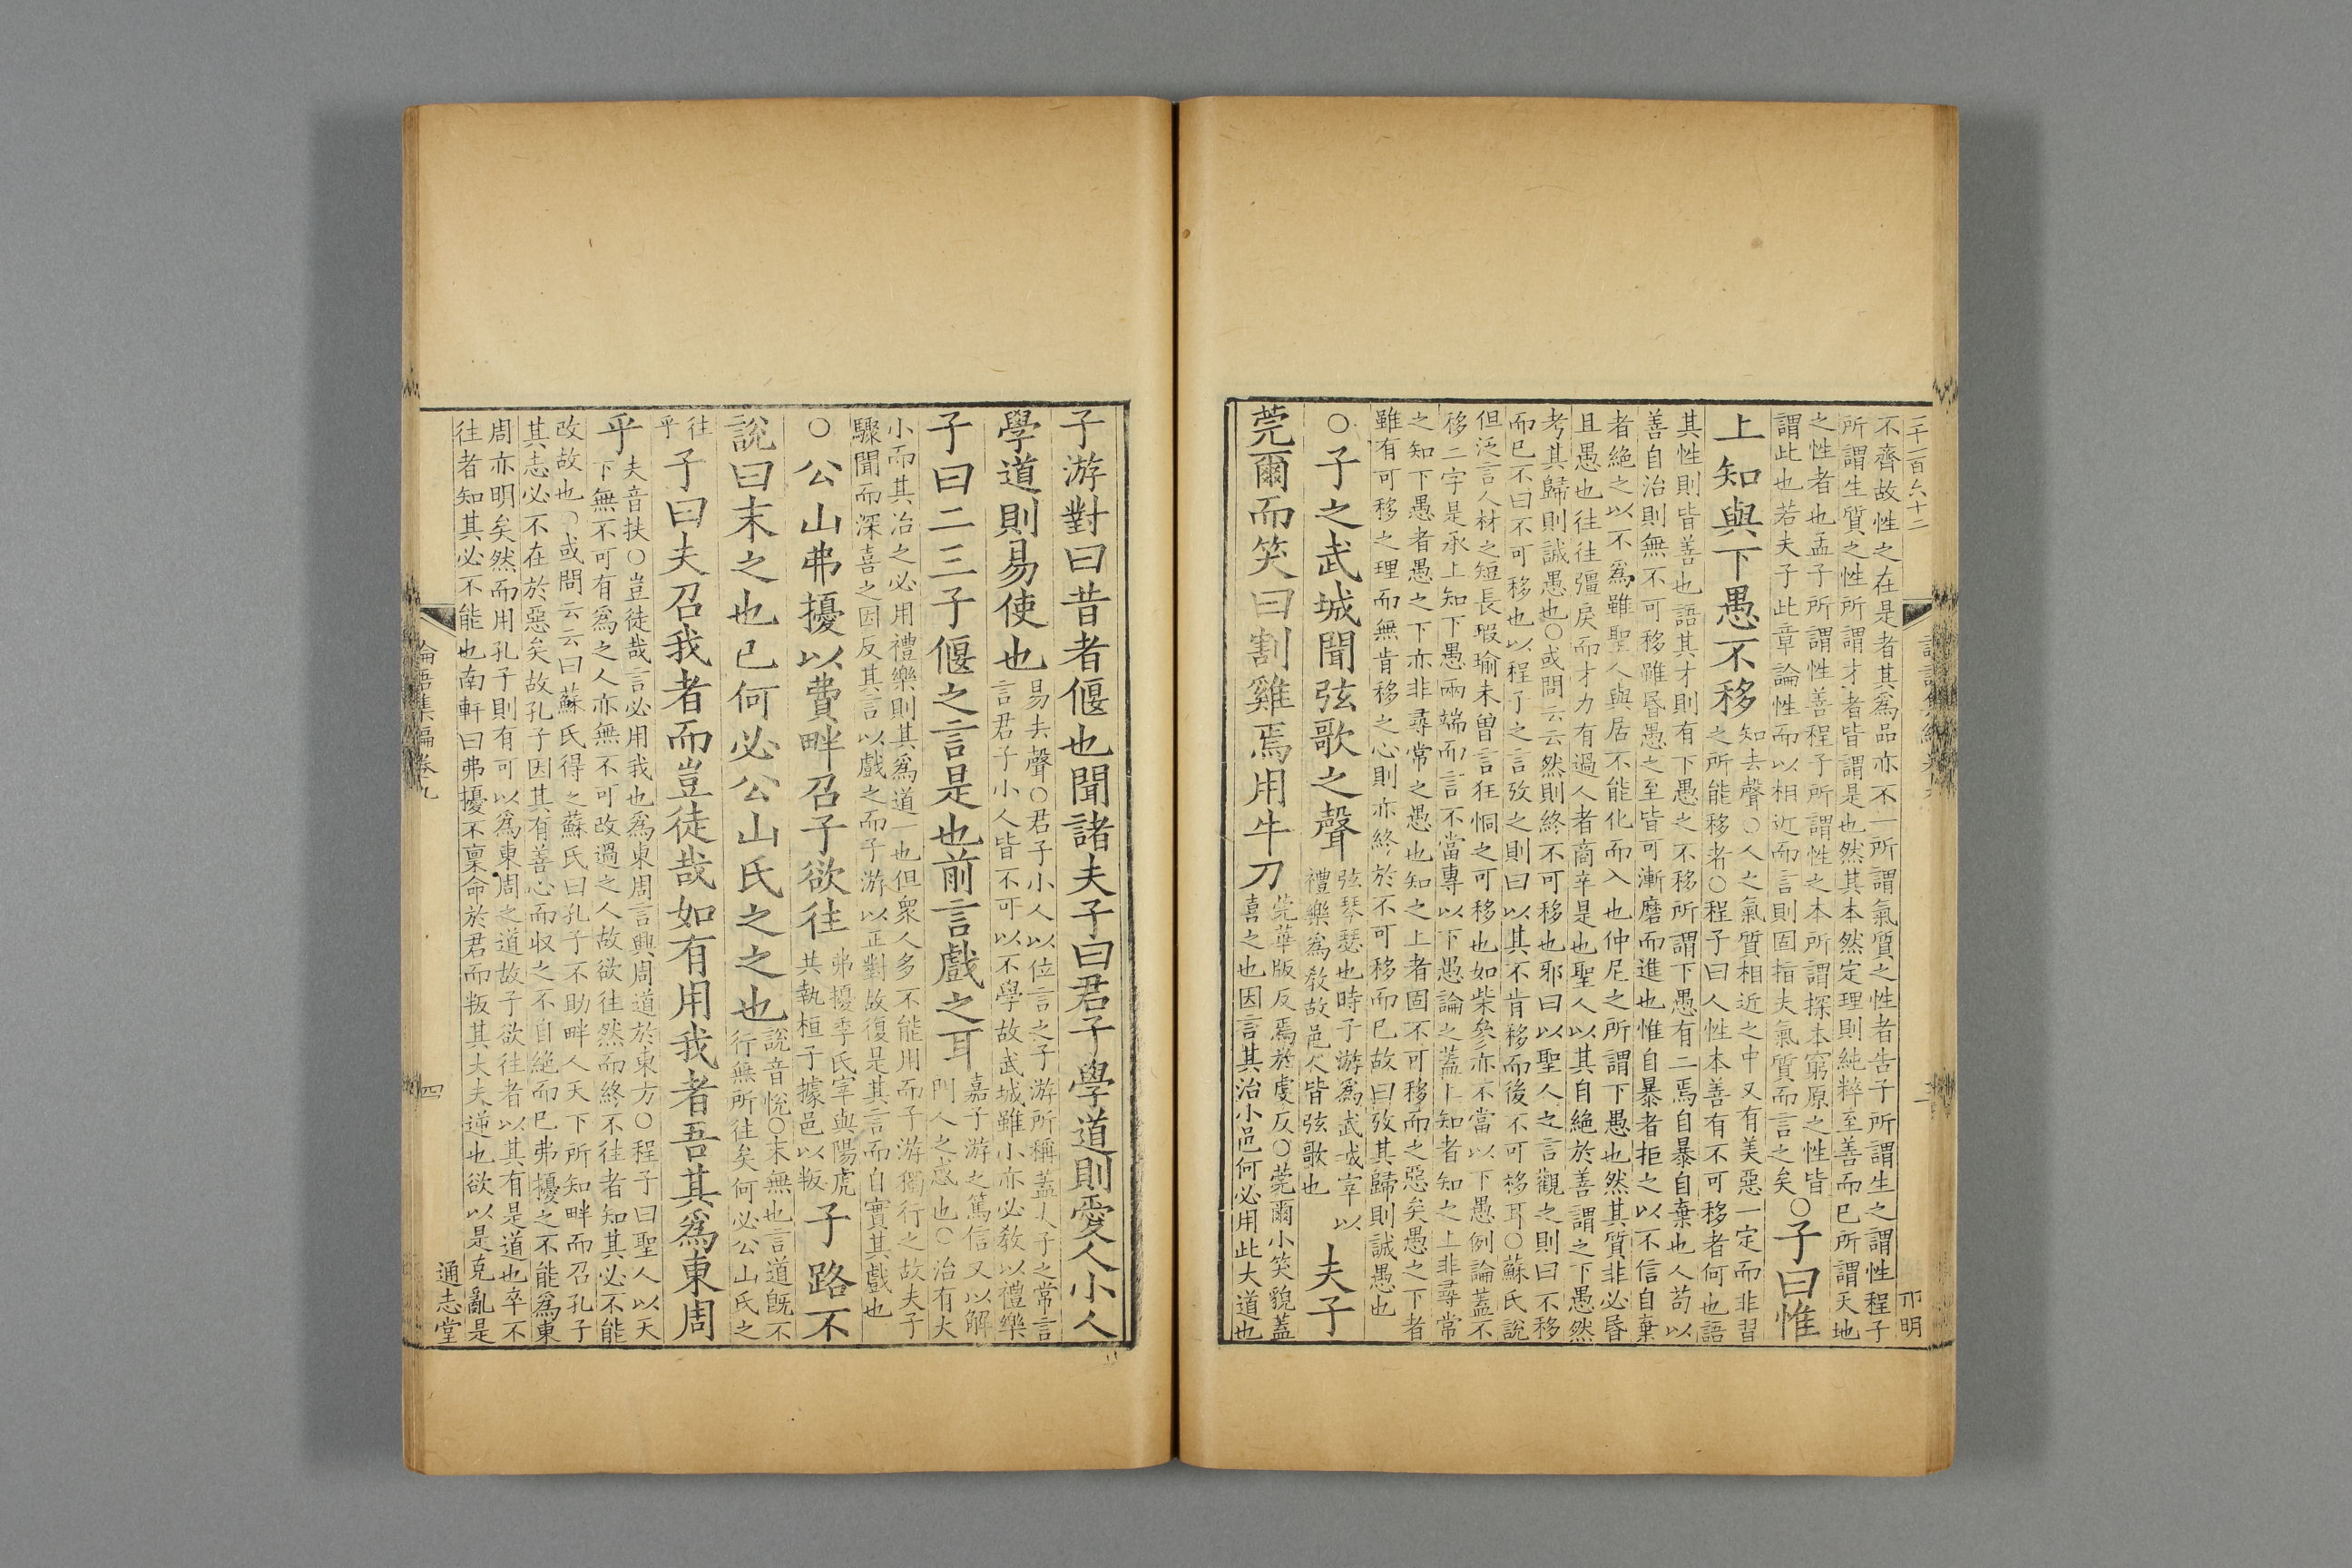 不齊故性之在是者其爲品亦不一所謂氣質之性者告子所謂生之謂性程子
所謂生質之性所謂才者皆謂是也然其本然定理則純粹至善而已所謂天地
之性者也孟子所謂性善程子所謂性之本所謂探本窮原之性皆
謂此也若夫子此章論性而以相近而言則固指夫氣質而言之矣
○子曰惟
上知與下愚不移
知去聲○人之氣質相近之中又有美惡一定而非習
之所能移者○程子曰人性本善有不可移者何也語
其性則皆善也語其才則有下愚之不移所謂下愚有二焉自暴自棄也人苟以
善自治則無不可移雖昏愚之至皆可漸磨而進也惟自暴者拒之以不信自棄
者絶之以不爲雖聖人與居不能化而入也仲尼之所謂下愚也然其質非必昏
且愚也往往彊戾而才力有過人者商辛是也聖人以其自絶於善謂之下愚然
考其歸則誠愚也○或問云云然則終不可移也耶曰以聖人之言觀之則曰不移
而已不曰不可移也以程子之言攷之則曰以其不肯移而後不可移耳○蘇氏說
但泛言人材之短長瑕瑜未曾言狂恫之可移也如柴參亦不當以下愚例論蓋不
移二字是承上知下愚兩端而言不當專以下愚論之蓋上知者知之上非尋常
之知下愚者愚之下亦非尋常之愚也知之上者固不可移而之惡矣愚之下者
雖有可移之理而無肯移之心則亦終於不可移而已故曰攷其歸則誠愚也
○子之武城聞弦歌之聲
弦琴瑟也時子游爲武城宰以
禮樂爲敎故邑人皆弦歌也
夫子
莞爾而笑曰割雞焉用牛刀
莞華版反焉於虔反○莞爾小笑貌蓋
喜之也因言其治小邑何必用此大道也
子游對曰昔者偃也聞諸夫子曰君子學道則愛人小人
學道則易使也
易去聲○君子小人以位言之子游所稱蓋夫子之常言
言君子小人皆不可以不學故武城雖小亦必敎以禮樂
子曰二三子偃之言是也前言戲之耳
嘉子游之篤信又以解
門人之惑也○治有大
小而其治之必用禮樂則其爲道一也但衆人多不能用而子游獨行之故夫子
驟聞而深喜之因反其言以戲之而子游以正對故復是其言而自實其戲也
○公山弗擾以費畔召子欲往
弗擾季氏宰與陽虎
共執桓子據邑以叛
子路不
說曰末之也已何必公山氏之之也
說音悅○末無也言道旣不
行無所往矣何必公山氏之
往
乎
子曰夫召我者而豈徒哉如有用我者吾其爲東周
乎
夫音扶○豈徒哉言必用我也爲東周言興周道於東方○程子曰聖人以天
下無不可有爲之人亦無不可改過之人故欲往然而終不往者知其必不能
改故也○或問云云曰蘇氏得之蘇氏曰孔子不助畔人天下所知畔而召孔子
其志必不在於惡矣故孔子因其有善心而收之不自絶而已弗擾之不能爲東
周亦明矣然而用孔子則有可以爲東周之道故子欲往者以其有是道也卒不
往者知其必不能也南軒曰弗擾不稟命於君而叛其大夫逆也欲以是克亂是
論語集編卷九
四
通志堂